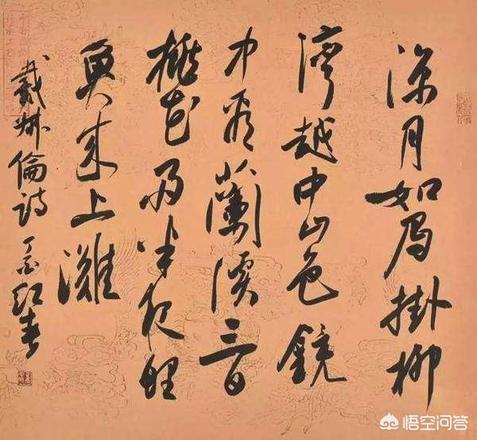 涼月如眉掛柳
灣越中山色鏡
中看蘭溪三日
桃花雨半夜鯉
魚来上灘
戴叔倫詩
悟空问答